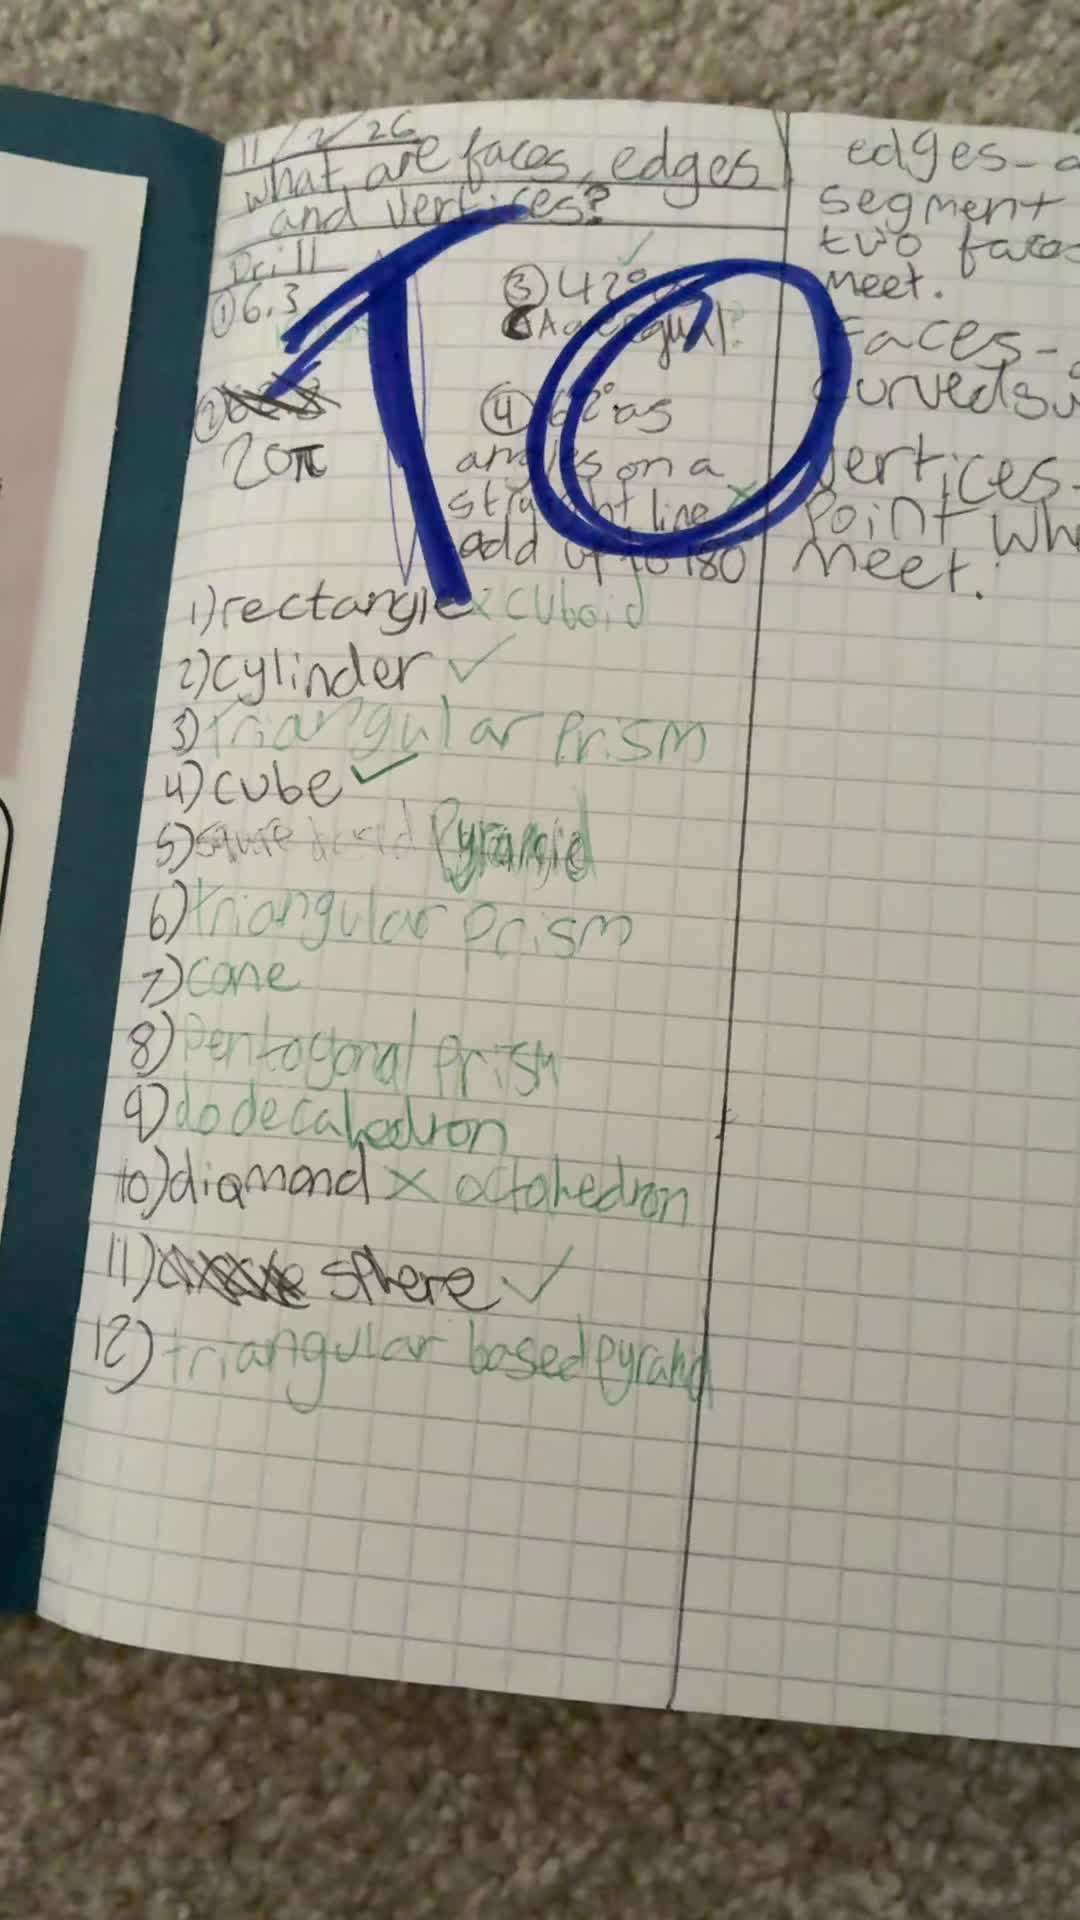 11/2/26
what are faces, edges
and vertices?
Drill
① 6.3
②
20π
③ 42°
equal?
④ 62° as
angles on a
straight line
add up to 180
TO
1) rectangle x cuboid
2) cylinder ✓
3) triangular prism
4) cube ✓
5) square based pyramid
6) triangular prism
7) cone
8) Pentagonal prism
9) dodecahedron
10) diamond x octahedron
11) sphere ✓
12) triangular based
edges-
segment
two faces
meet.
Faces-
curved
vertices-
Point
meet.